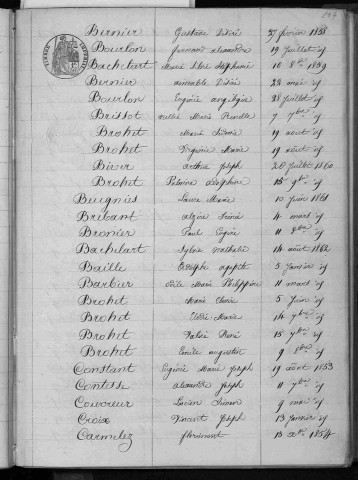 Bernier Gustave Désiré 27 février 1858
Bourlon fernand alexandre 19 Juillet id
Bachelart Marie Stéphanie 10 8bre 1859
Bernier aimable Désiré 22 mai id
Bourlon Eugénie angélique 28 Juillet id
Brissot Marie 7 7bre id
Brohet Marie 19 août id
Brohet Virginie Marie 19 août id
Joseph 28 Juillet 1860
Brohet Palmire 15 9bre id
Buignies Laure Marie 10 Juin 1861
Bribant 4 mars id
Bronier Paul Eugène 11 8bre id
Bachelart Sylvie Nathalie 14 août 1862
Baille Joseph agapite 5 Janvier id
Barbier Odile Marie Philippine 11 mars id
Brohet Marie 5 Juin id
Brohet Marie 14 7bre id
Brohet René 15 7bre id
Brohet Emile augustin 9 id
Constant Eugénie Marie Joseph 19 août 1853
Contesse alexandre Joseph 11 7bre id
Couvreur Lucien 9 mai id
Croix Vincent Joseph 13 Janvier id
Carmelez florimont 13 Xbre 1854